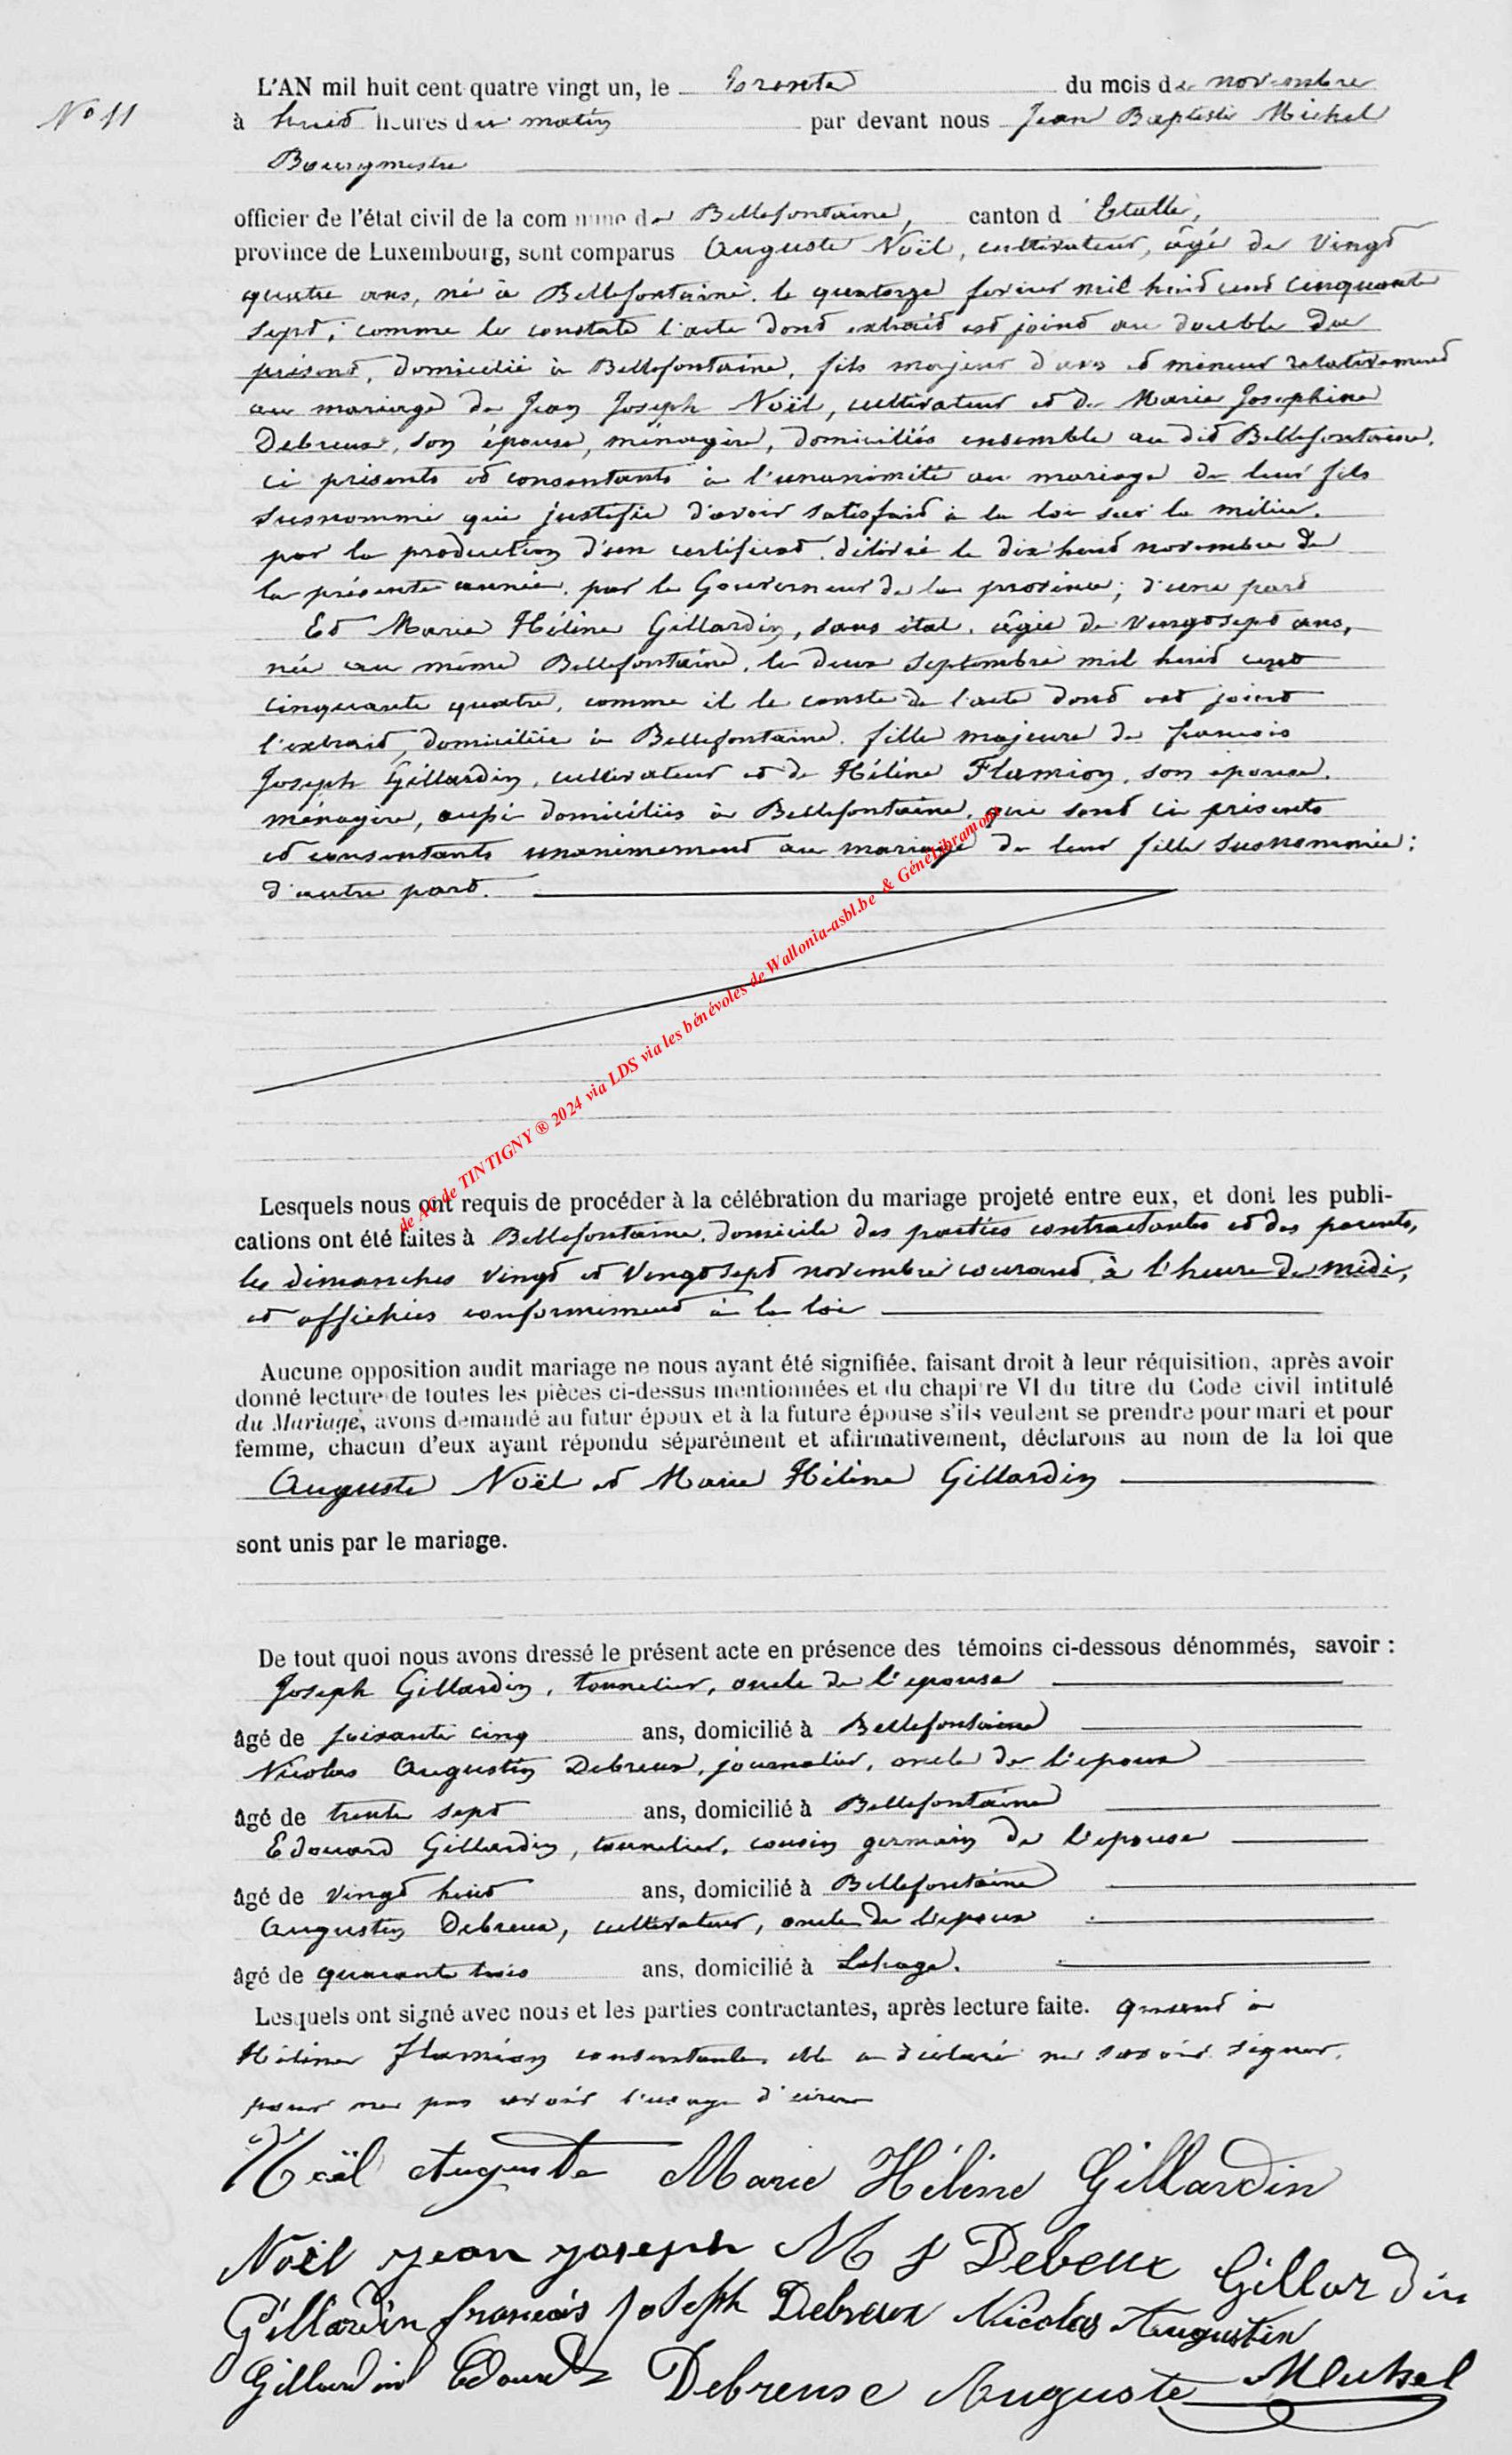 L'AN mil huit cent quatre vingt un, le trente du mois de novembre
N° 11
à huit heures du matin par devant nous Jean Baptiste Michel
Bourgmestre
officier de l'état civil de la commune de Bellefontaine, canton d'Etalle,
province de Luxembourg, sont comparus Auguste Noël, cultivateur, âgé de vingt
quatre ans, né à Bellefontaine, le quatorze fevrier mil huit cent cinquante
sept, comme le constate l'acte dont extrait est joint au double du
présent, domicilié à Bellefontaine, fils majeur d'ans et mineur relativement
au mariage de Jean Joseph Noël, cultivateur et de Marie Josephine
Debreux, son épouse, ménagère, domiciliés ensemble au dit Bellefontaine,
ci présents et consentants à l'unanimité au mariage de leur fils
susnommé qui justifie d'avoir satisfait à la loi sur la milice,
par la production d'un certificat délivré le dix huit novembre de
la présente année, par le Gouverneur de la province; d'une part
Et Marie Hélène Gillardin, sans état, âgée de vingt sept ans,
née au même Bellefontaine, le deux septembre mil huit cent
cinquante quatre, comme il le conste de l'acte dont est joint
l'extrait, domiciliée à Bellefontaine, fille majeure de francois
Joseph Gillardin, cultivateur et de Hélène Flamion, son épouse,
ménagère, aussi domiciliés à Bellefontaine, qui sont ci présents
et consentants unanimement au mariage de leur fille susnommée;
d'autre part.
de AC de TINTIGNY ® 2024 via LDS via les bénévoles de Wallonia-asbl.be & GénéLibramont
Lesquels nous ont requis de procéder à la célébration du mariage projeté entre eux, et dont les publi-
cations ont été faites à Bellefontaine, domicile des parties contractantes et des parents,
les dimanches vingt et vingt sept novembre courant à l'heure de midi,
et affichées conformément à la loi
Aucune opposition audit mariage ne nous ayant été signifiée, faisant droit à leur réquisition, après avoir
donné lecture de toutes les pièces ci-dessus mentionnées et du chapitre VI du titre du Code civil intitulé
du Mariage, avons demandé au futur époux et à la future épouse s'ils veulent se prendre pour mari et pour
femme, chacun d'eux ayant répondu séparément et affirmativement, déclarons au nom de la loi que
Auguste Noël et Marie Hélène Gillardin
sont unis par le mariage.
De tout quoi nous avons dressé le présent acte en présence des témoins ci-dessous dénommés, savoir :
Joseph Gillardin, tonnelier, oncle de l'epouse
âgé de soixante cinq ans, domicilié à Bellefontaine
Nicolas Augustin Debreux, journalier, oncle de l'epoux
âgé de trente sept ans, domicilié à Bellefontaine
Edouard Gillardin, tonnelier, cousin germain de l'epouse
âgé de vingt huit ans, domicilié à Bellefontaine
Augustin Debreux, cultivateur, oncle de l'epoux
âgé de quarante trois ans, domicilié à Lahage.
Lesquels ont signé avec nous et les parties contractantes, après lecture faite. quant à
Hélène flamion consentante, elle a déclaré ne savoir signer,
pour ne pas avoir l'usage d'ecrire
Noël Auguste Marie Hélène Gillardin
Noël jean joseph M J Debeux Gillardin
Gillardin francois Joseph Debreux Nicolas Augustin
Gillardin Edouard Debreuse Auguste Michel